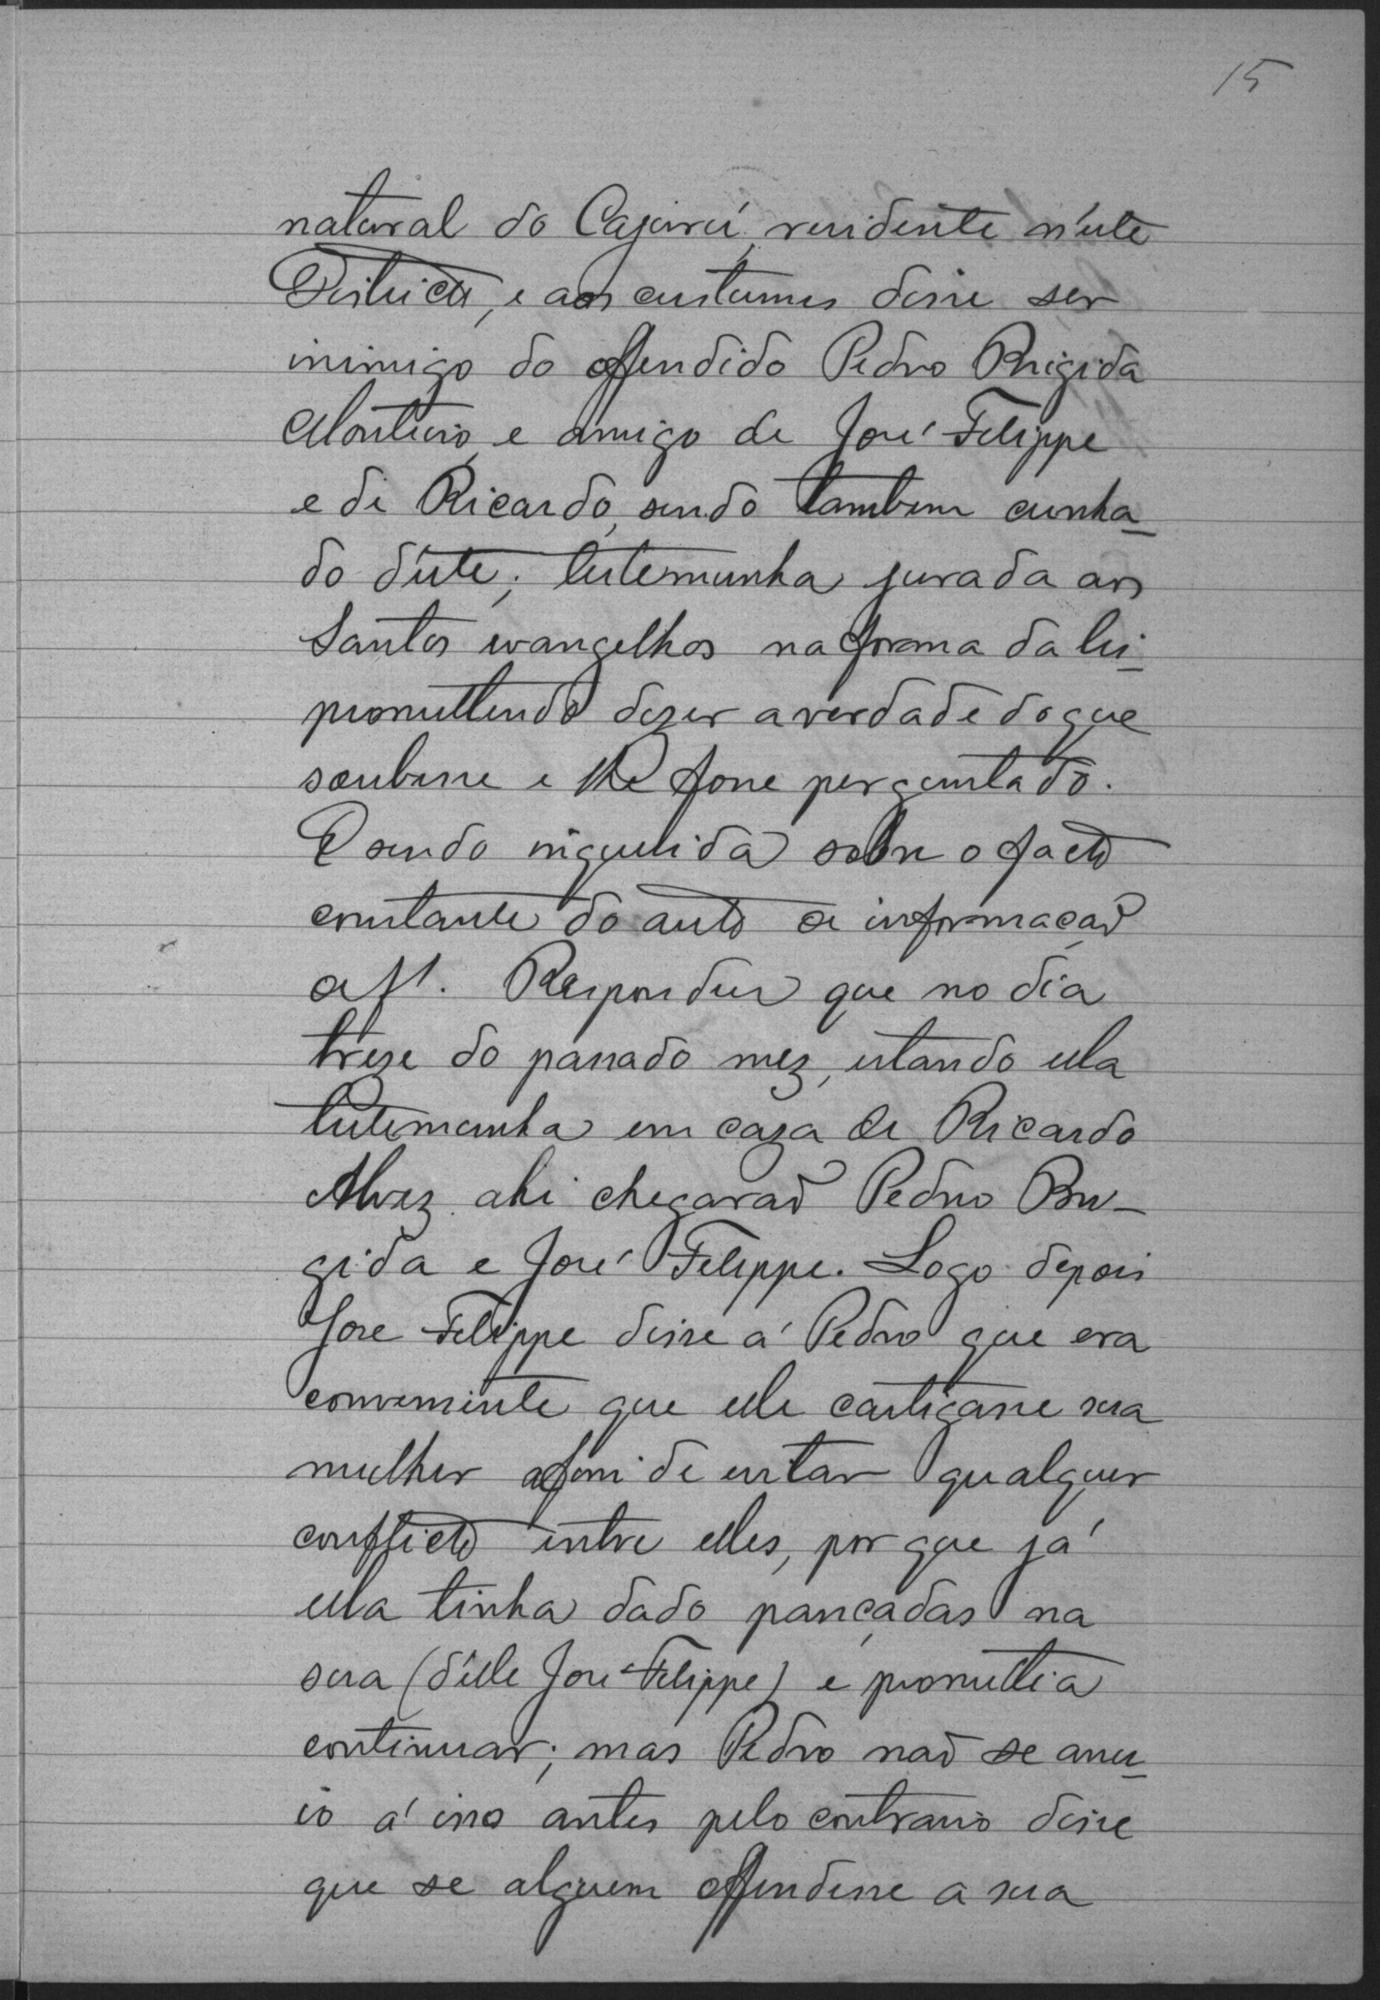 15
natural do Cajurú, residente n'este
Districto, e aos custumes disse ser
inimigo do offendido Pedro Brigida
Monteiro, e amigo de José Filippe
e de Ricardo, sendo tambem cunha-
do d'este; testemunha jurada aos
Santos evangelhos na forma da lei-
promettendo dizer a verdade do que
soubesse e lhe fosse perguntado.
E sendo inquerida sobre o facto
constante do auto de informação
a fl. Respondeu que no dia
treze do passado mez, estando ella
testemunha em caza de Ricardo
Alvez ahi chegarão Pedro Bri-
gida e José Filippe. Logo depois
Jose Filippe disse á Pedro que era
conveniente que elle castigasse sua
mulher afim de evitar qualquer
conflicto entre elles, por que já
ella tinha dado pancadas na
sua (d'elle José Filippe) e promettia
continuar; mas Pedro não se anu-
io á isso antes pelo contrario disse
que se alguem offendesse a sua